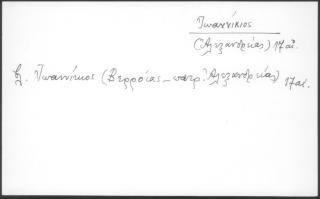 Ἰωαννίκιος
(Ἀλεξανδρείας) 17 αἰ.
Ἰωαννίκιος (Βερροίας – πατρ. Ἀλεξανδρείας) 17 αἰ.